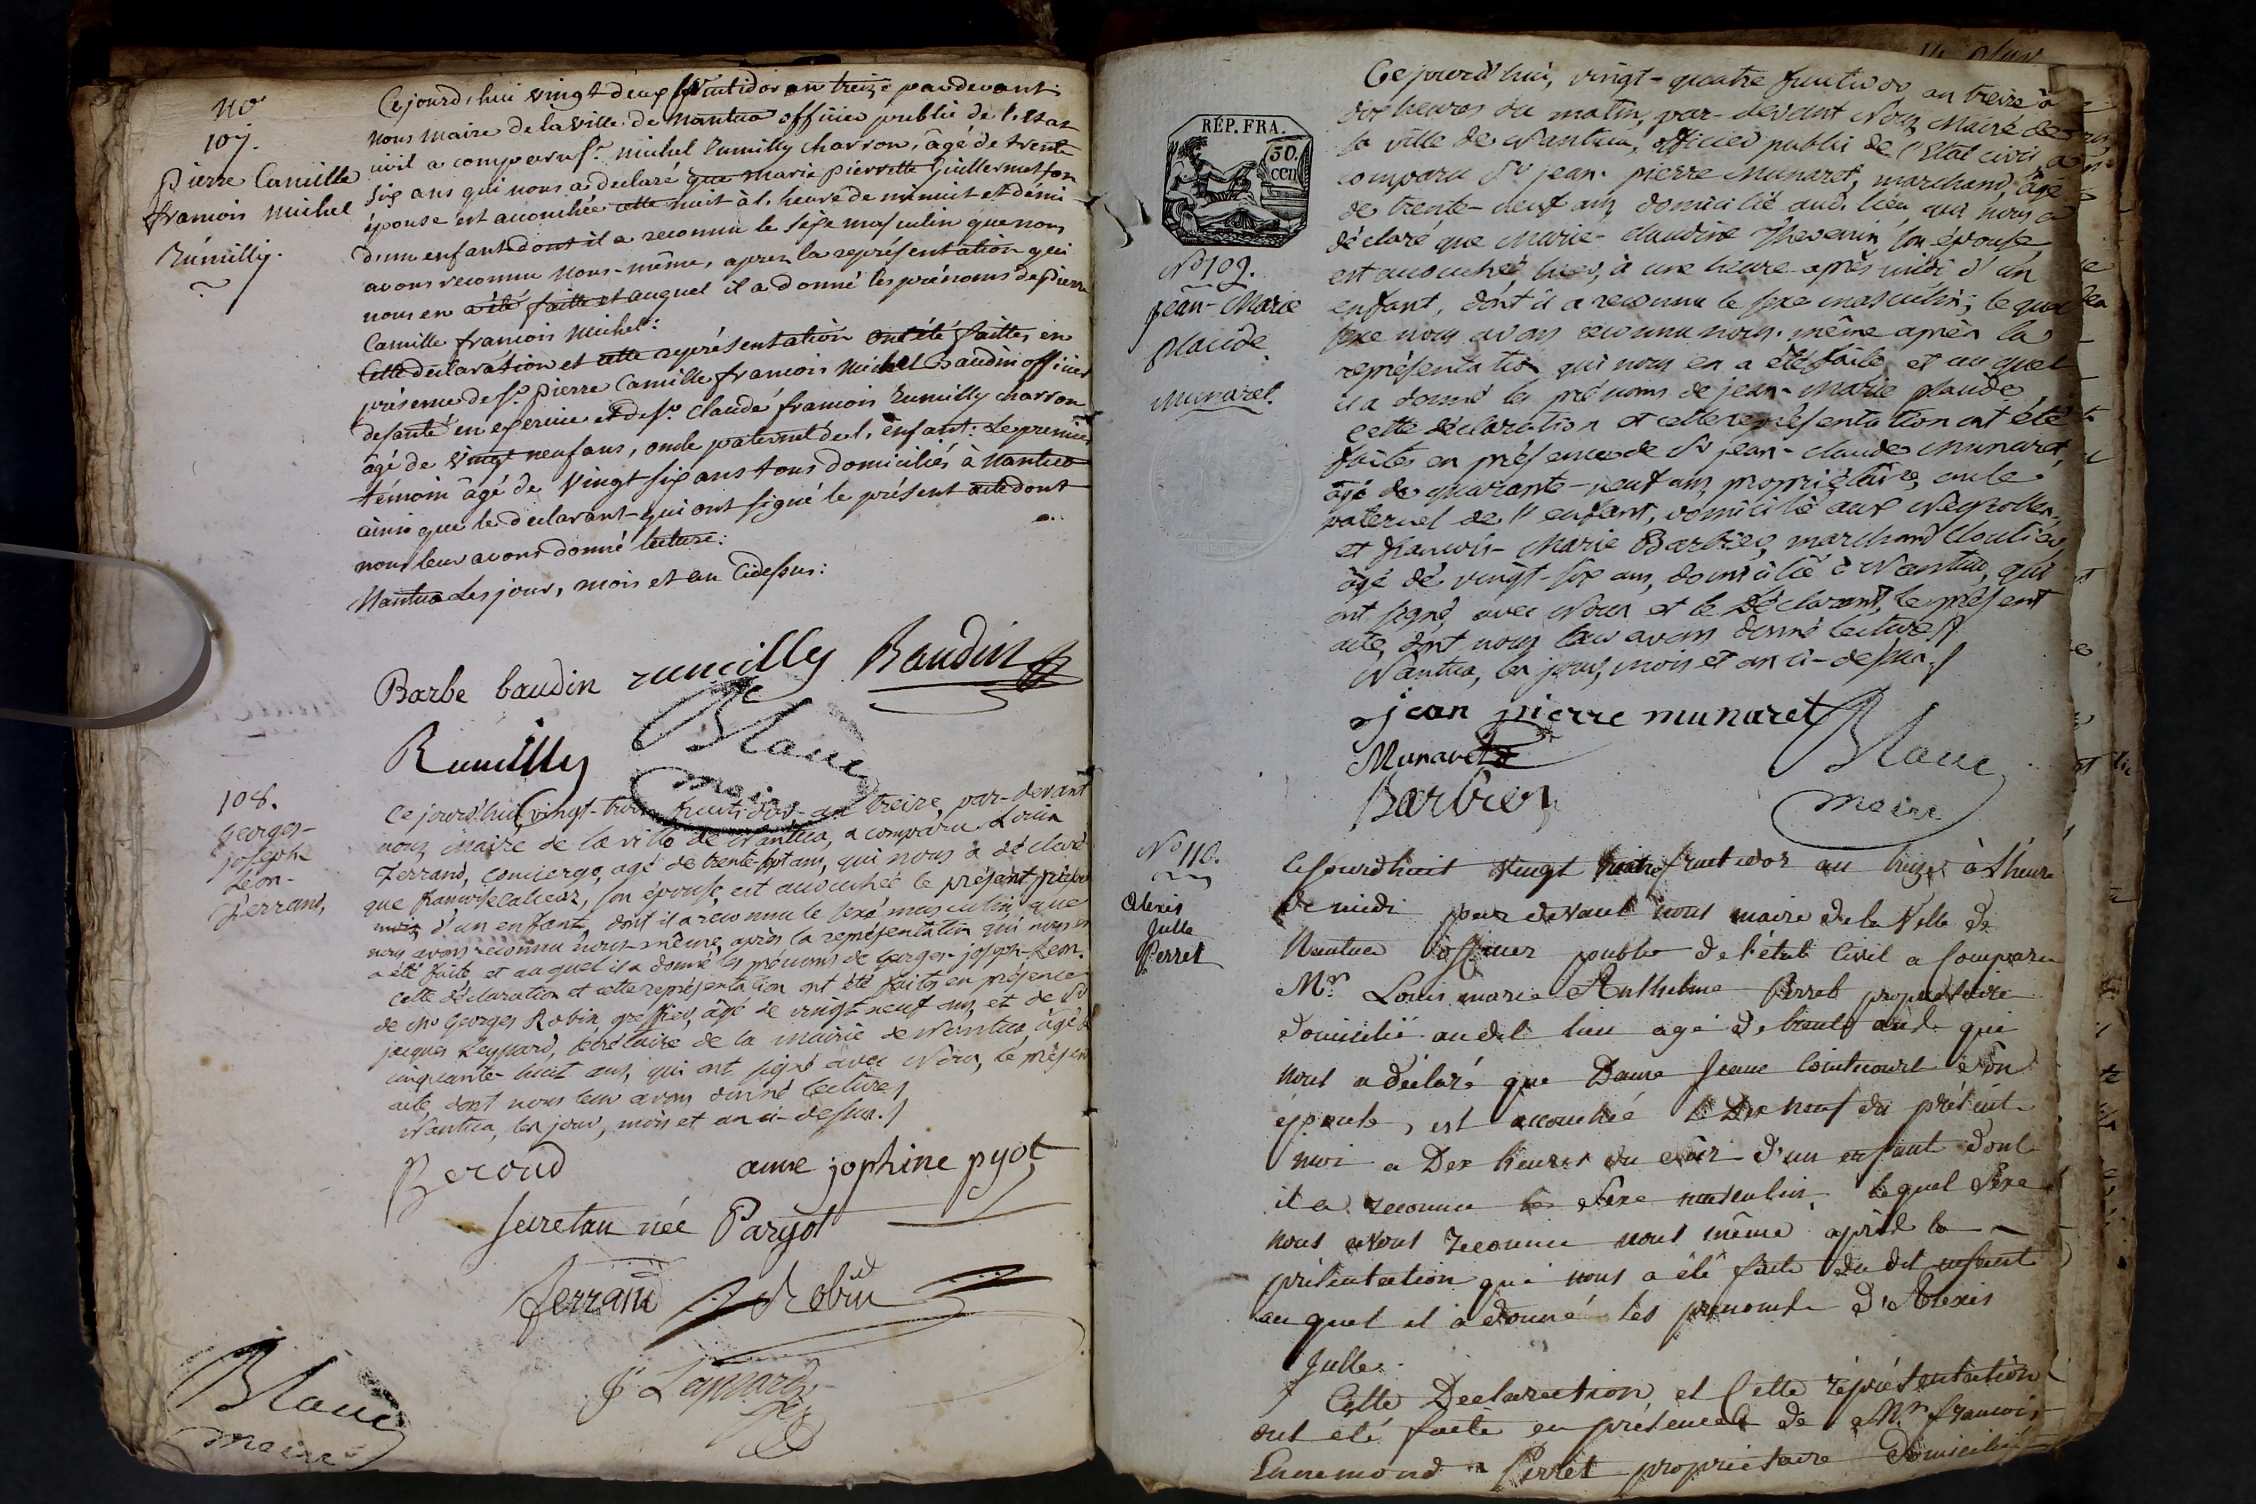 N.º
107.
Pierre Camille
francois michel
Rumilly.
Cejourd'hui vingt deux fructidor an treize pardevant
nous maire de la ville de Nantua officier public de l'état
civil a comparu Sr. michel Rumilly charron, âgé de trente
six ans qui nous a declaré que marie pierrette Guillermet son
épouse est accouchée cette nuit à l'heure de minuit et demi
d'un enfant dont il a reconnu le sexe masculin que nous
avons reconnu nous-même, aprez la représentation qui
nous en a été faitte et auquel il a donné les prénoms de pierre
Camille francois michel:
Cette declaration et cette représentation ont été faittes en
présence de Sr. pierre Camille francois michel Baudin officier
de santé en exercice et de Sr. Claude francois Rumilly charron
âgé de vingt neuf ans, oncle paternel de l'enfant: le premier
témoin âgé de vingt six ans tous domiciliés à Nantua
ainsi que le declarant qui ont signé le présent acte dont
nous leur avons donné lecture:
Nantua les jour, mois et an cidessus:
Barbe baudin rumilly Baudin
Rumilly Blanc
maire
108.
Georges-
joseph-
Léon-
Ferrand,
Ce jourd'hui vingt-trois fructidor an treize, par-devant
nous maire de la ville de Nantua, a comparu Louis
Ferrand, concierge, agé de trente-sept ans, qui nous a déclaré
que françoise, son épouse, est accouchée le présent
mois, d'un enfant, dont il a reconnu le sexe masculin, que
nous avons reconnu nous-même, après la représentation qui nous en
a été faite, et auquel il a donné les prénoms de Georges-joseph-Léon.
Cette déclaration et cette représentation ont été faites en présence
de Mr Georges Robin, greffier, âgé de vingt neuf ans, et de Sr
jacques Leyssard, secrétaire de la mairie de Nantua, âgé de
cinquante-huit ans, qui ont signé avec Nous, le présent
acte, dont nous leur avons donné lecture.
Nantua, les jour, mois et an ci-dessus.
Beroud anne jophine pyot
Secretan née Paryot
Ferrand Robin
Jq Leyssard
Blanc
maire
RÉP. FRA.
50.
cen
Nº 109.
jean-Marie
placide
munaret.
Cejourd'hui, vingt-quatre fructidor, an treize à
dix heures du matin, par-devant Nous Maire de
la ville de Nantua, officier public de l'Etat civil a
comparu Sr jean-pierre Munaret, marchand, âgé
de trente-neuf ans, domicilié aud. lieu, qui nous a
déclaré que Marie-claudine Thevenin, son épouse,
est accouchée, hier, à une heure après midi d'un
enfant, dont il a reconnu le sexe masculin; le quel
sexe nous avons reconnu nous-même après la
représentation qui nous en a été faite et au quel
il a donné les prénoms de jean-Marie placide.
cette déclaration et cette représentation ont été
faites en présence de Sr jean-claude Munaret,
âgé de quarante-neuf ans, propriétaire, oncle
paternel de l'enfant, domicilié aux Neyrolles,
et françois-Marie Barbier, marchand cloutier,
âgé de vingt-six ans, domicilié à Nantua, qui
ont signé, avec Nous et le Déclarant, le présent
acte, dont nous leur avons donné lecture.
Nantua, les jour, mois et an ci-dessus.
jean pierre munaret
Munaret Blanc
Barbier maire
Nº 110.
Alexis
Julle
Perret
Cejourdhuit vingt quatre fructidor an treize à l'heure
de midi par devant nous maire de la Ville de
Nantua officier public de l'état Civil a Comparu
Mr. Louis marie Anthelme Perret proprietaire
domicilié audit lieu agé de trente ans qui
nous a déclaré que Dame Jeanne son
épouse, est accouchée le Dix neuf du présent
moi a Dix heures du soir d'un enfant dont
il a reconnu le sexe masculin lequel sexe
nous avons reconnu nous même après la
présentation qui nous a été faite du dit enfant
au quel il a donné les prenoms D'Alexis
Julle.
Cette Declaration et Cette représentation
ont été faite en présence de Mr. francois
Ennemond Perret propriétaire domicilié